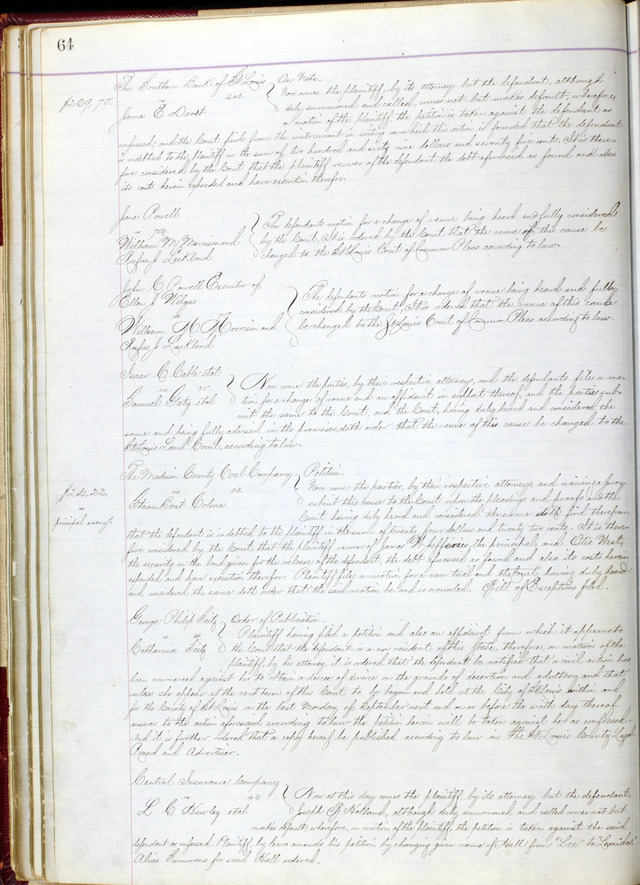 64
The Southern Bank of St Louis On Note.
Now comes the plaintiff, by its attorney but the defendant, although
James E
duly summoned and called, comes not but makes default, wherefore,
on motion of the plaintiff the petition is taken against the defendant as
confessed; and the Court finds from the instrument in writing on which this action is founded that the defendant
is indebted to the plaintiff in the sum of two hundred and sixty nine dollars and seventy five cents. It is there-
fore considered by the Court that the plaintiff recover of the defendant the debt aforesaid as found and also
its costs herein expended and have execution therefor.
Jane Powell
The defendants motion for a change of venue being heard and fully considered
William M
by the Court, it is ordered by the Court that the venue of this cause be
Rufus J Lackland
changed to the St Louis Court of Common Pleas according to law.
John C Powell Executor of
Ellen J
The defendants motion for a change of venue being heard and fully
considered by the Court, it is ordered that the venue of this cause
William M
be changed to the St Louis Court of Common Pleas according to law
Rufus J Lackland
Isaac C Cable et al
Now come the parties, by their respective attorneys, and the defendants file a mo-
Samuel Gaty et al
tion for a change of venue and an affidavit in support thereof, and the parties sub-
mit the same to the Court, and the Court, having duly heard and considered the
same and being fully advised in the premises, doth order that the venue of this cause be changed to the
St Louis Land Court, according to law.
The Madison County Coal Company Petition.
24.22.
Now come the parties, by their respective attorneys, and waiving a jury
Steam Boat Colona
submit this cause to the Court upon the pleadings and proofs and the
Court having duly heard and considered the same doth find therefrom
that the defendant is indebted to the plaintiff in the sum of twenty four dollars and twenty two cents. It is there-
fore considered by the Court that the plaintiff recover of James the principal, and Otis
the security in the bond given for the release of the defendant, the debt aforesaid as found and also its costs herein
expended and have execution therefor. Plaintiff files a motion for a new trial and the Court having duly heard
and considered the same doth order that the said motion be and is overruled. Bill of Exceptions filed.
George Philip Order of Publication.
Plaintiff having filed a petition and also an affidavit from which it appears to
Catharine
the Court that the defendant is a non resident of this State, therefore, on motion of the
plaintiff, by his attorney, it is ordered that the defendant be notified that a civil action has
been commenced against her to obtain a decree of divorce on the grounds of desertion and adultery, and that
unless she appear at the next term of this Court to be begun and held at the City of St Louis within and
for the County of St Louis on the last Monday of September next and on or before the sixth day thereof
answer to the action aforesaid according to law the petition herein will be taken against her as confessed.
And it is further ordered that a copy hereof be published according to law in The St Louis County Legal
Record and Advertiser.
Central Insurance Company
Now at this day comes the plaintiff, by its attorney but the defendant
L C Hawley et al
Joseph Holland, although duly summoned and called comes not but
makes default, wherefore, on motion of the plaintiff, the petition is taken against the said
defendant as confessed. Plaintiff by leave amends his petition by changing given name of Hall from "Lee" to
Alias Summons for said Hall ordered.